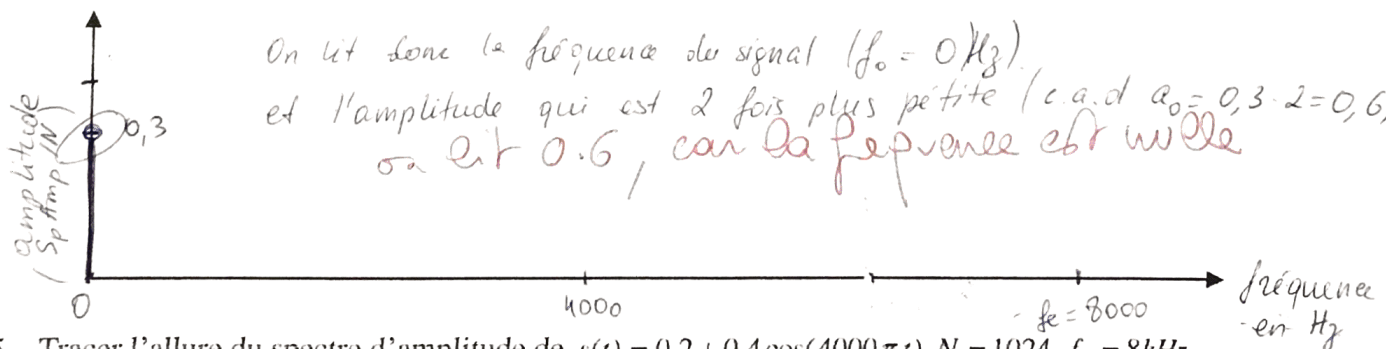 On lit donc la fréquence du signal (f₀ = 0 Hz)
et l'amplitude qui est 2 fois plus pétite (c.a.d a₀ = 0,3·2 = 0,6,
on lit 0.6, car la freqvence est nulle
amplitude
(Sp Amp/N)
0,3
0
4000
fe = 8000
fréquence
en Hz
Tracer l'allure du spectre d'amplitude de s(t) = 0.2 + 0.4cos(4000πt), N = 1024, f = 8kHz